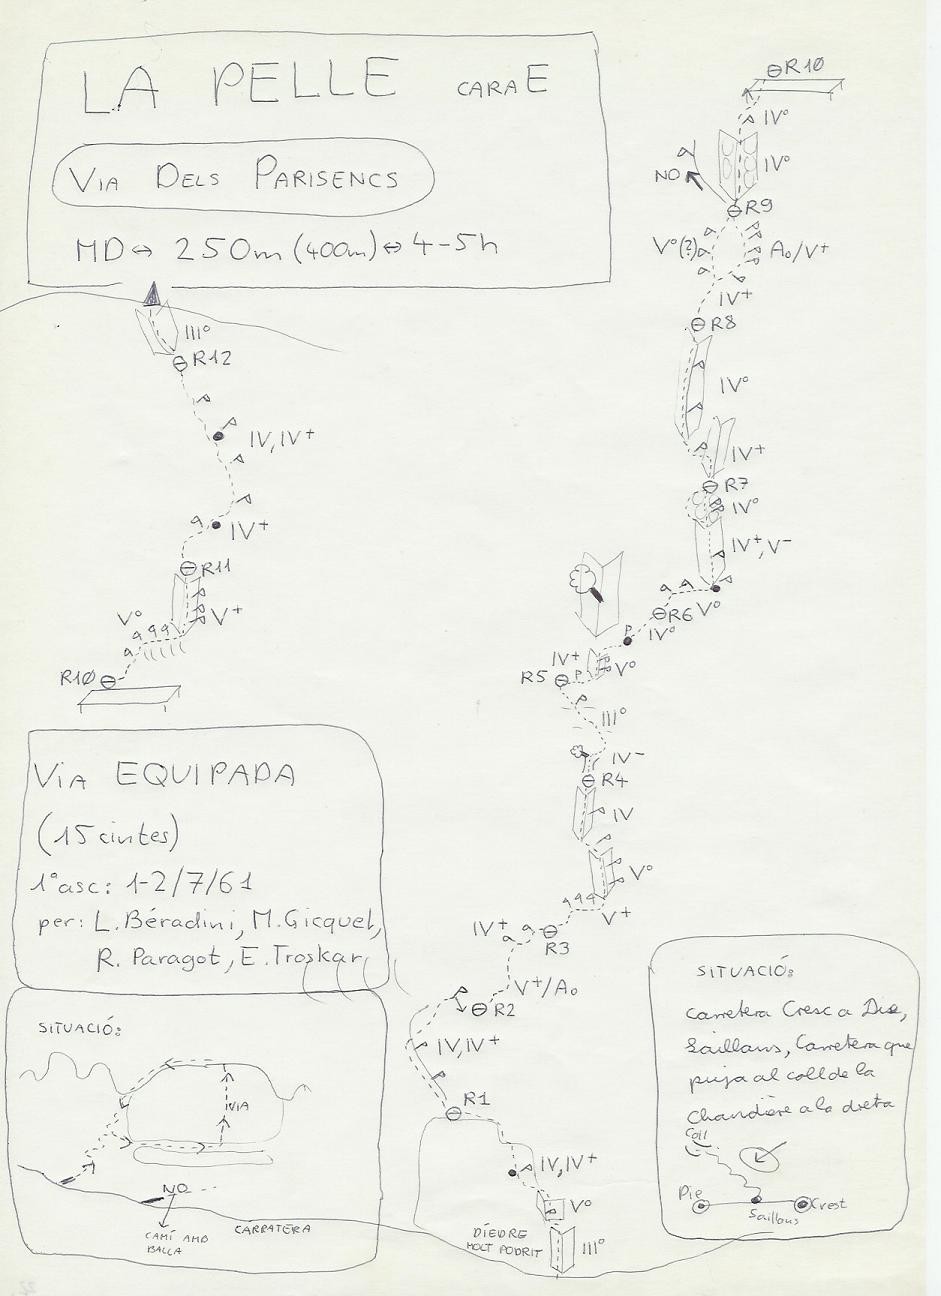 LA PELLE CARA E
VIA DELS PARISENCS
MD ↔ 250m (400m) ↔ 4-5h
IIIº
R12
IV, IV+
IV+
R11
Vº
V+
R10
R10
IVº
IVº
NO
R9
Vº(?)
A0/V+
IV+
R8
IVº
IV+
R7
IVº
IV+, V-
R6 Vº
IVº
P
IV+
Vº
R5
P
P
IIIº
IV-
R4
IV
Vº
V+
IV+
R3
V+/A0
R2
IV, IV+
R1
IV, IV+
Vº
DÍEDRE
MOLT PODRIT
IIIº
VIA EQUIPADA
(15 cintes)
1ª asc: 1-2/7/61
per: L. Béradini, M. Gicquel,
R. Paragot, E. Troskar
SITUACIÓ:
VIA
NO ...
CAMÍ AMB
BALLA
CARRATERA
SITUACIÓ:
Carretera Cresc a Die,
Saillans, Carretera que
puja al coll de la
Chandière a la dreta
Coll
Die
Saillans
Crest